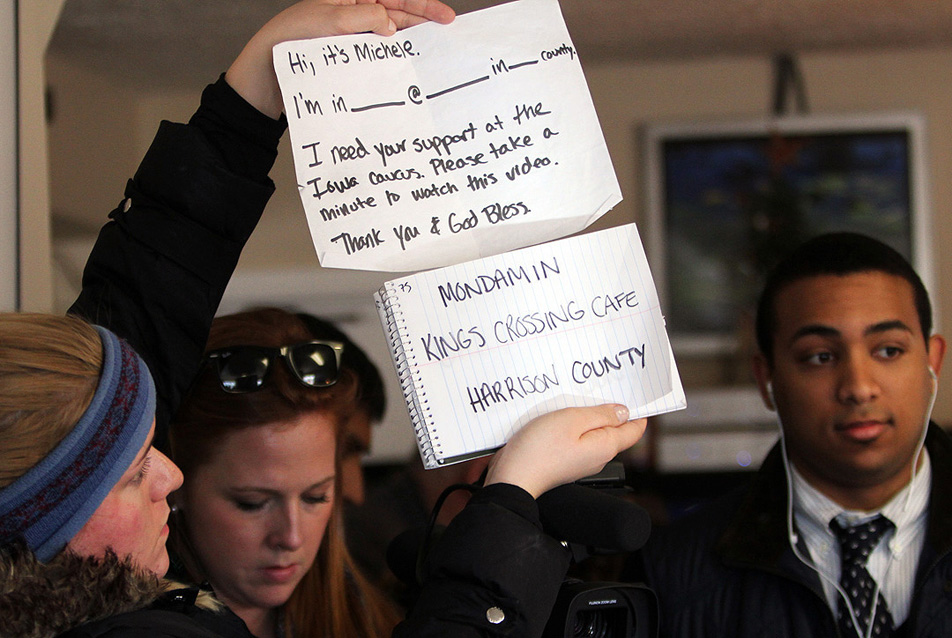 Hi, it's Michele.
I'm in ____ @ ____ in ___ county.
I need your support at the
Iowa caucus. Please take a
minute to watch this video.
Thank you & God Bless
75
MONDAMIN
KINGS CROSSING CAFE
HARRISON COUNTY